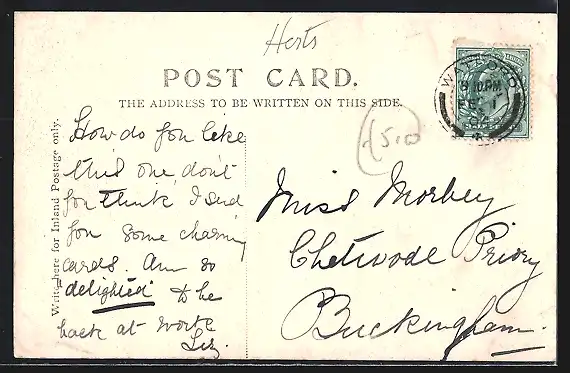 Herts
POST CARD.
THE ADDRESS TO BE WRITTEN ON THIS SIDE.
Write here for Inland Postage only.
How do you like
this one, don't
you think, I send
you some charming
cards. Am so
delighted to be
back at work
Liz.
(5.00
WATFORD
8 10 PM
FE 1
04
Miss Morbey
Chetwode Priory
Buckingham.